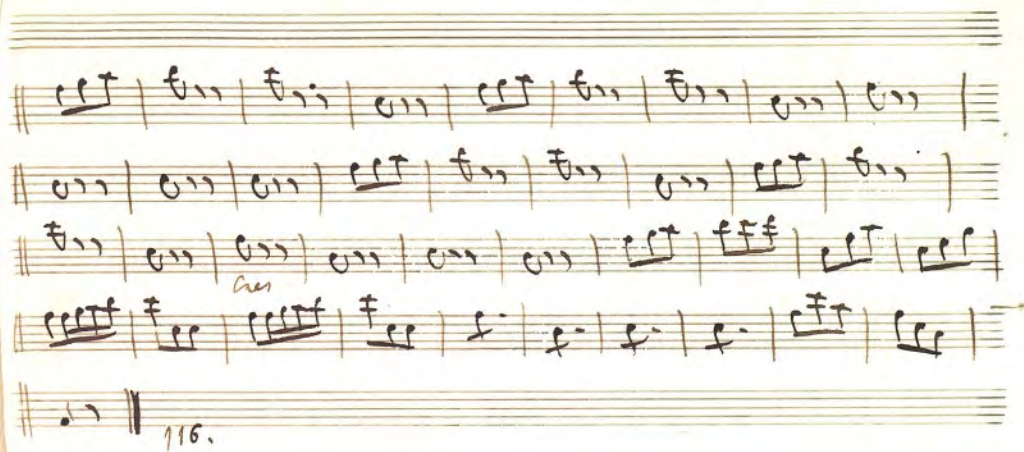 Cres
116.